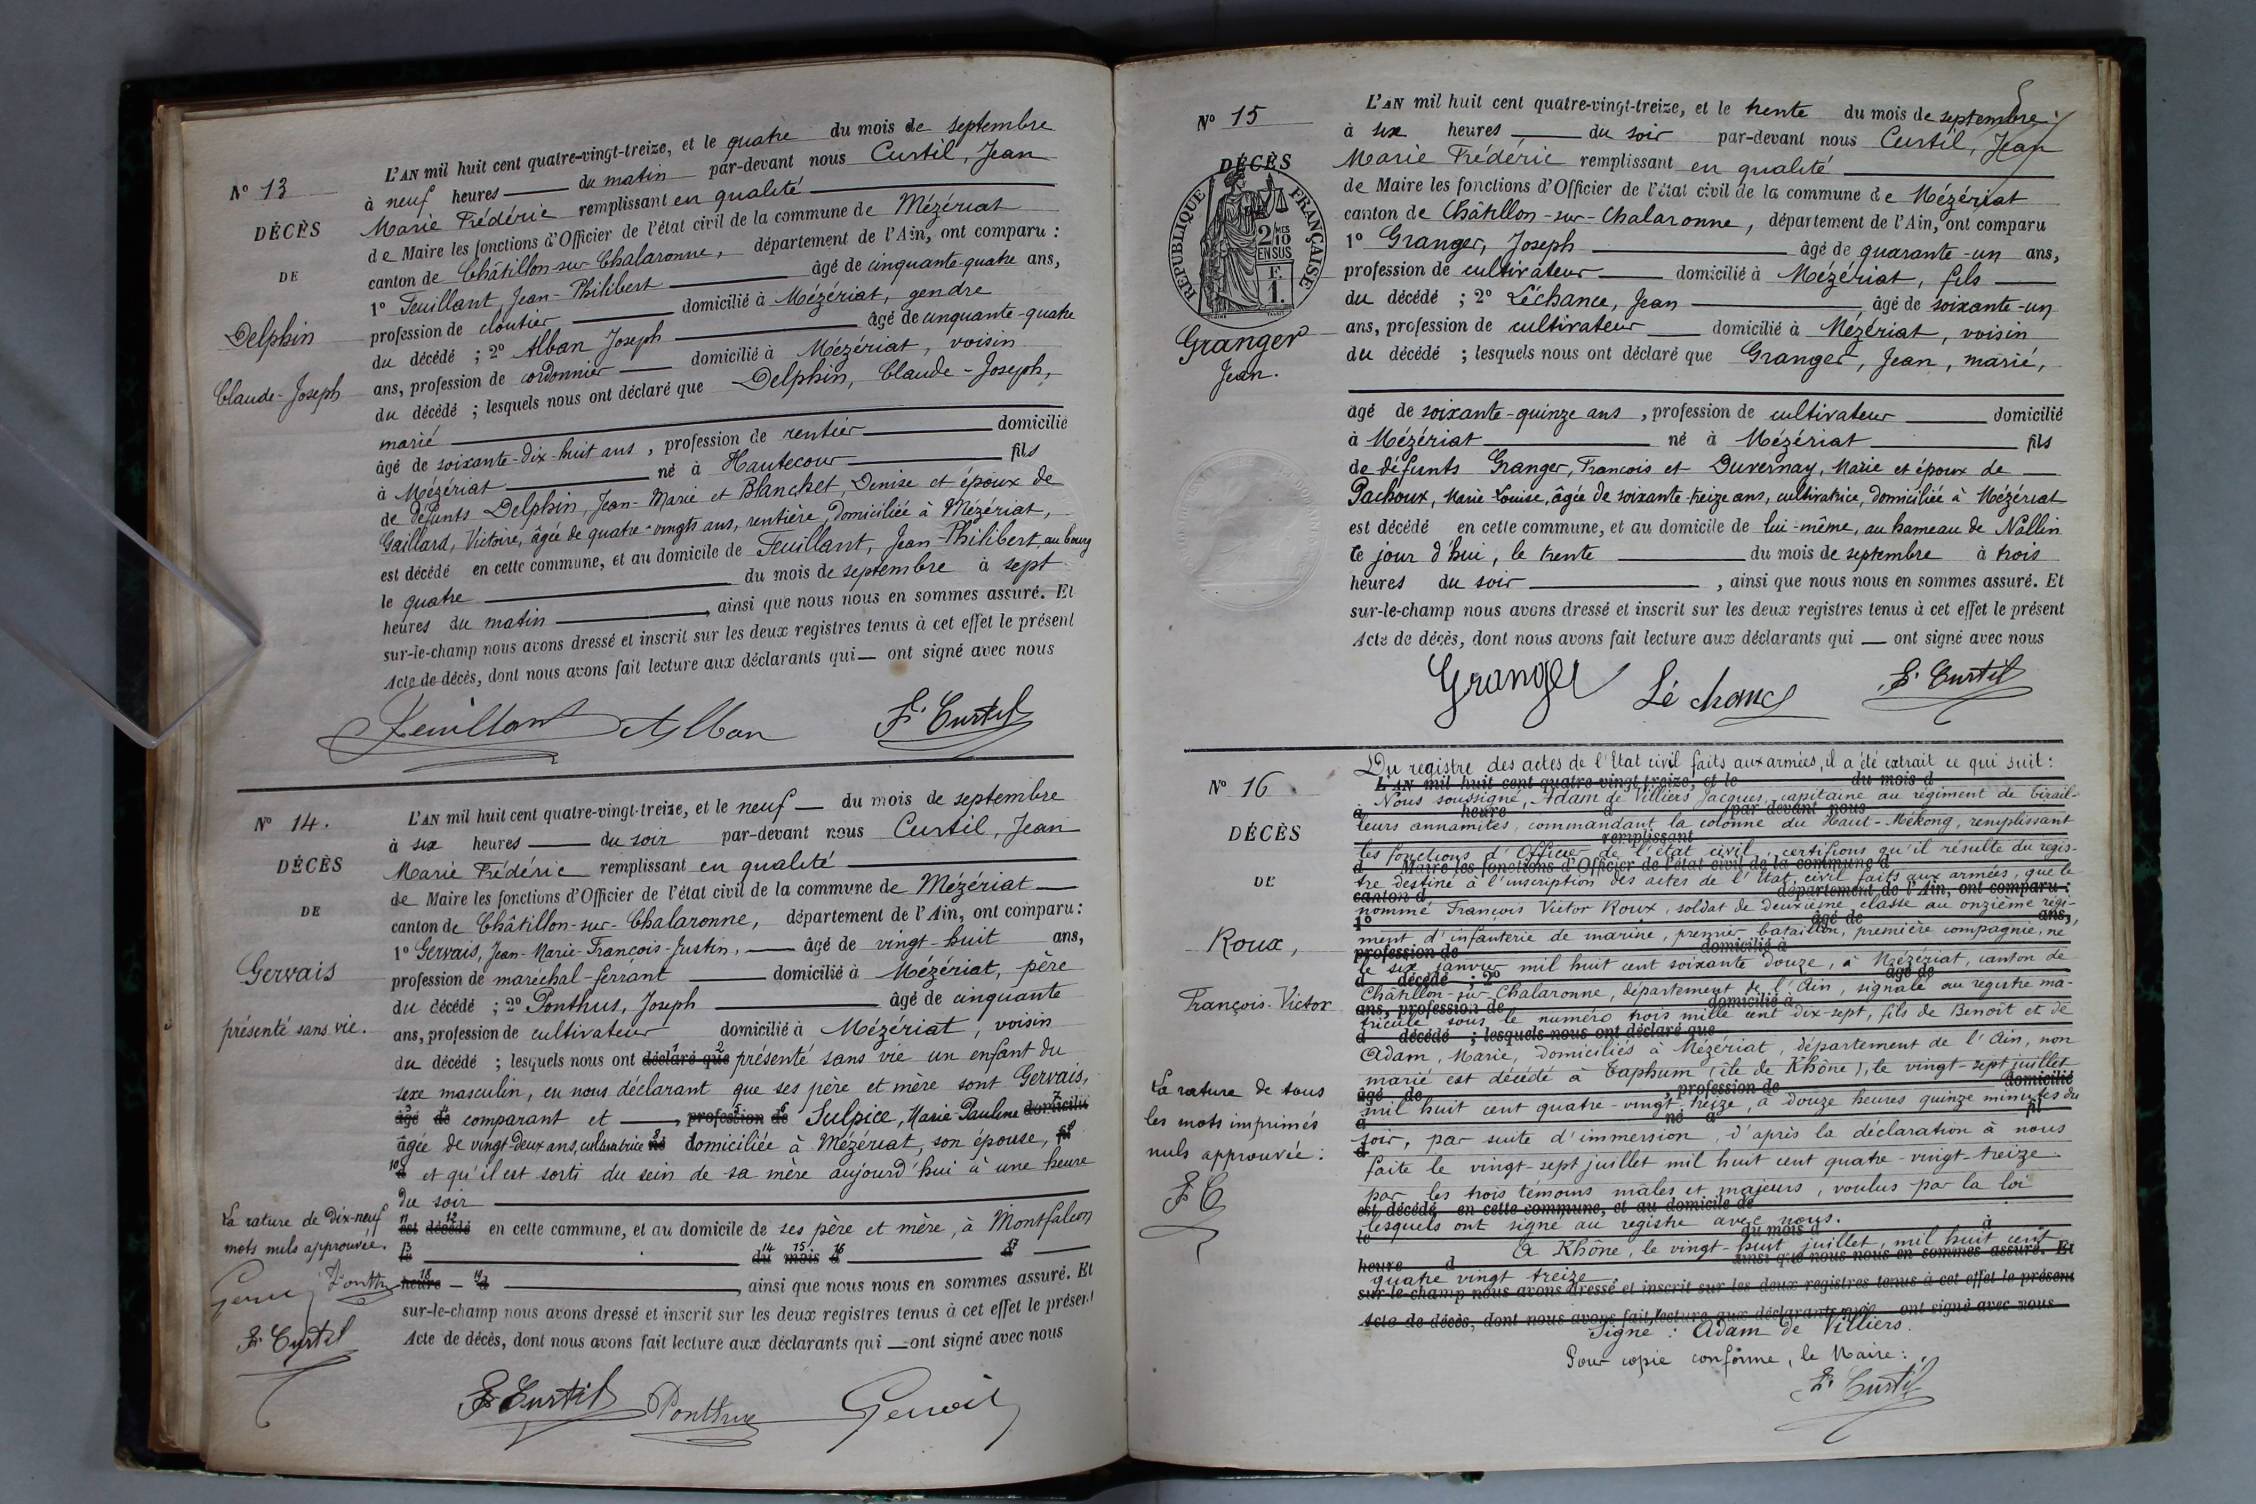 N° 13
DÉCÈS
DE
Delphin
Claude-Joseph
L'AN mil huit cent quatre-vingt-treize, et le quatre du mois de septembre
à neuf heures du matin par-devant nous Curtil, Jean
Marie Frédéric remplissant en qualité
de Maire les fonctions d'Officier de l'état civil de la commune de Mézériat
canton de Châtillon-sur-Chalaronne, département de l'Ain, ont comparu :
1° Feuillant, Jean-Philibert âgé de cinquante-quatre ans,
profession de cloutier domicilié à Mézériat, gendre
du décédé ; 2° Alban Joseph âgé de cinquante-quatre
ans, profession de cordonnier domicilié à Mézériat, voisin
du décédé ; lesquels nous ont déclaré que Delphin, Claude-Joseph,
marié
âgé de soixante-dix-huit ans, profession de rentier domicilié
à Mézériat né à Hautecour fils
de défunts Delphin, Jean-Marie et Blanchet, Denise et époux de
Gaillard, Victoire, âgée de quatre-vingts ans, rentière, domiciliée à Mézériat,
est décédé en cette commune, et au domicile de Feuillant, Jean-Philibert, au bourg
le quatre du mois de septembre à sept
heures du matin , ainsi que nous nous en sommes assuré. Et
sur-le-champ nous avons dressé et inscrit sur les deux registres tenus à cet effet le présent
Acte de décès, dont nous avons fait lecture aux déclarants qui ont signé avec nous
Feuillant Alban F. Curtil
N° 14.
DÉCÈS
DE
Gervais
présenté sans vie.
L'AN mil huit cent quatre-vingt-treize, et le neuf du mois de septembre
à six heures du soir par-devant nous Curtil, Jean
Marie Frédéric remplissant en qualité
de Maire les fonctions d'Officier de l'état civil de la commune de Mézériat
canton de Châtillon-sur-Chalaronne, département de l'Ain, ont comparu :
1° Gervais, Jean-Marie-François-Justin, âgé de vingt-huit ans,
profession de maréchal-ferrant domicilié à Mézériat, père
du décédé ; 2° Ponthus, Joseph âgé de cinquante
ans, profession de cultivateur domicilié à Mézériat, voisin
du décédé ; lesquels nous ont déclaré que présenté sans vie un enfant du
sexe masculin, en nous déclarant que ses père et mère sont Gervais,
âgé de comparant et profession de Sulpice, Marie-Pauline domicilié
âgée de vingt-deux ans, cultivatrice né domiciliée à Mézériat, son épouse, fil
à et qu'il est sorti du sein de sa mère aujourd'hui à une heure
du soir
est décédé en cette commune, et au domicile de ses père et mère, à Montfalcon
le du mois d à
heure d ainsi que nous nous en sommes assuré. Et
sur-le-champ nous avons dressé et inscrit sur les deux registres tenus à cet effet le présent
Acte de décès, dont nous avons fait lecture aux déclarants qui ont signé avec nous
La rature de dix-neuf
mots nuls approuvée.
Gervais Ponthus
F. Curtil
F. Curtil Ponthus Gervais
N° 15
DÉCÈS
RÉPUBLIQUE FRANÇAISE
2 MES
10
EN SUS
F.
1.
Granger
Jean.
L'AN mil huit cent quatre-vingt-treize, et le trente du mois de septembre
à six heures du soir par-devant nous Curtil, Jean
Marie Frédéric remplissant en qualité
de Maire les fonctions d'Officier de l'état civil de la commune de Mézériat
canton de Châtillon-sur-Chalaronne, département de l'Ain, ont comparu
1° Granger, Joseph âgé de quarante-un ans,
profession de cultivateur domicilié à Mézériat, fils
du décédé ; 2° Léchance, Jean âgé de soixante-un
ans, profession de cultivateur domicilié à Mézériat, voisin
du décédé ; lesquels nous ont déclaré que Granger, Jean, marié,
âgé de soixante-quinze ans, profession de cultivateur domicilié
à Mézériat né à Mézériat fils
de défunts Granger, François et Duvernay, Marie et époux de
Pachoux, Marie Louise, âgée de soixante-treize ans, cultivatrice, domiciliée à Mézériat
est décédé en cette commune, et au domicile de lui-même, au hameau de Nallin
ce jour d'hui, le trente du mois de septembre à trois
heures du soir , ainsi que nous nous en sommes assuré. Et
sur-le-champ nous avons dressé et inscrit sur les deux registres tenus à cet effet le présent
Acte de décès, dont nous avons fait lecture aux déclarants qui ont signé avec nous
Granger Léchance F. Curtil
N° 16
DÉCÈS
DE
Roux,
François-Victor
La rature de tous
les mots imprimés
nuls approuvée :
F C
Du registre des actes de l'Etat civil faits aux armées, il a été extrait ce qui suit :
L'AN mil huit cent quatre-vingt-treize, et le du mois d
Nous soussigné, Adam de Villiers Jacques, capitaine au régiment de tirail-
à heure d par-devant nous
leurs annamites, commandant la colonne du Haut-Mékong, remplissant
remplissant
les fonctions d'Officier de l'état civil, certifions qu'il résulte du regis-
d Maire les fonctions d'Officier de l'état civil de la commune d
tre destiné à l'inscription des actes de l'Etat civil faits aux armées, que le
canton d département de l'Ain, ont comparu :
nommé François Victor Roux, soldat de deuxième classe au onzième régi-
1° âgé de ans,
ment d'infanterie de marine, premier bataillon, première compagnie, né
profession de domicilié à
le six janvier mil huit cent soixante douze, à Mézériat, canton de
d décédé ; 2° âgé de
Châtillon-sur-Chalaronne, département de l'Ain, signalé au registre ma-
ans, profession de domicilié à
tricule sous le numéro trois mille cent dix-sept, fils de Benoît et de
d décédé ; lesquels nous ont déclaré que
Adam, Marie, domiciliés à Mézériat, département de l'Ain, non
marié est décédé à Taphum (île de Khône), le vingt-sept juillet
âgé de , profession de domicilié
mil huit cent quatre-vingt treize, à douze heures quinze minutes du
à né à fil
soir, par suite d'immersion, d'après la déclaration à nous
d
faite le vingt-sept juillet mil huit cent quatre-vingt-treize
par les trois témoins mâles et majeurs, voulus par la loi
est décédé en cette commune, et au domicile de
lesquels ont signé au registre avec nous.
le du mois d à
A Khône, le vingt-huit juillet, mil huit cent
heure d ainsi que nous nous en sommes assuré. Et
quatre vingt treize.
sur-le-champ nous avons dressé et inscrit sur les deux registres tenus à cet effet le présent
Acte de décès, dont nous avons fait lecture aux déclarants qui ont signé avec nous
Signé : Adam de Villiers.
Pour copie conforme, le Maire :
F. Curtil